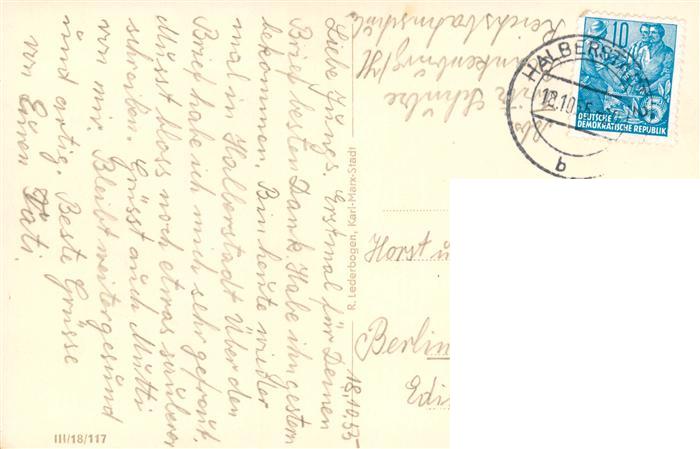 18.10.55
Liebe Jungs. Erstmal für Deinen
Brief besten Dank. Habe ihn gestern
bekommen. Bin heute wieder
mal in Halberstadt. Über den
Brief habe ich mich sehr gefreut.
Musst bloss noch etwas sauberer
schreiben. Grüsst auch Mutti
von mir. Bleibt weiter gesund
und artig. Beste Grüsse
von Euren Vati.
III/18/117
R. Lederbogen, Karl-Marx-Stadt
Reichsbahnschule
Blankenburg/H
Schulze
Abs
HALBERSTADT
18.10.55
b
10
DEUTSCHE
DEMOKRATISCHE REPUBLIK
Horst u
Berlin
Edi